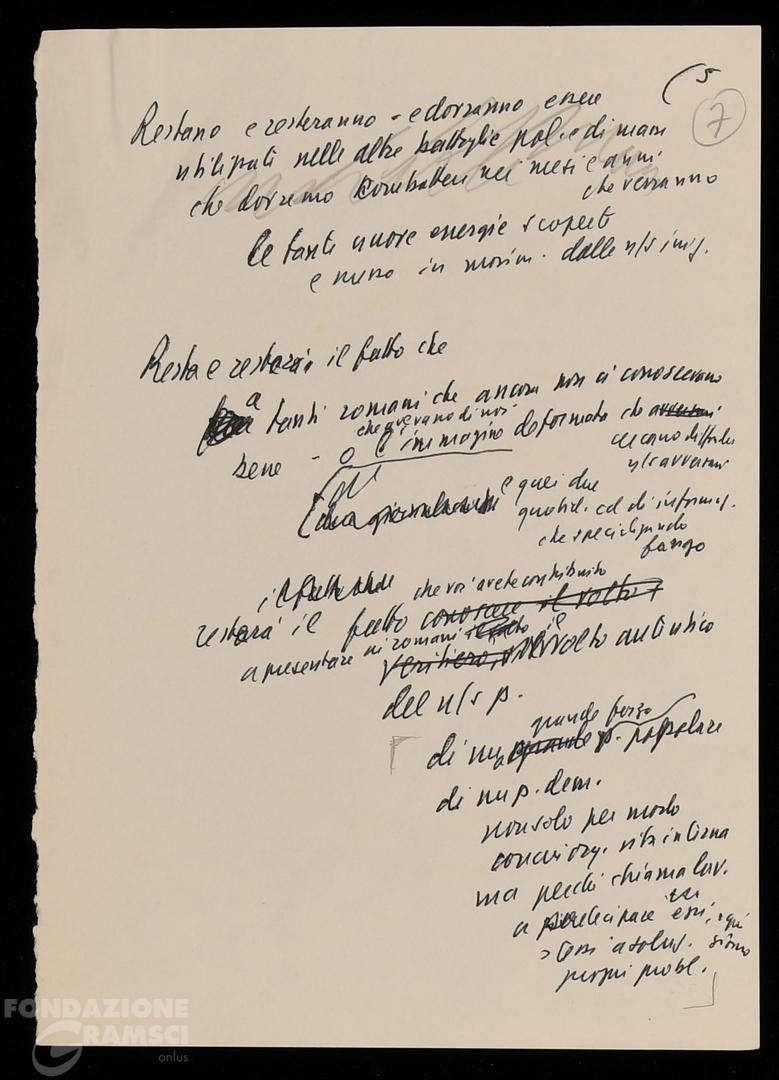 ( 5
7
Restano e resteranno - e dovranno essere
utilizzati nelle altre battaglie pol. e di massa
che dovremo combattere nei mesi e anni
che verranno
le tante nuove energie scoperte
e messe in movim. dalle n/s iniz.
Resta e resterà il fatto che
a tanti romani che ancora non ci conoscevano
che avevano di noi
bene - o l'immagine deformata che
cercano diffondere
n/s avversari
e quei due
quotid. ed di informaz.
che specializzando
fango
il fatto che
che voi avete contribuito
resterà il fatto conoscere il volto
a presentare ai romani il
veritiero, volto autentico
del n/s p.
grande forza
di un grande p. popolare
di un p. dem.
non solo per modo
concui org. vita interna
ma perché chiama lav.
a partecipare essi,
stessi a soluz. ogni giorno
propri probl.
FONDAZIONE
GRAMSCI
onlus